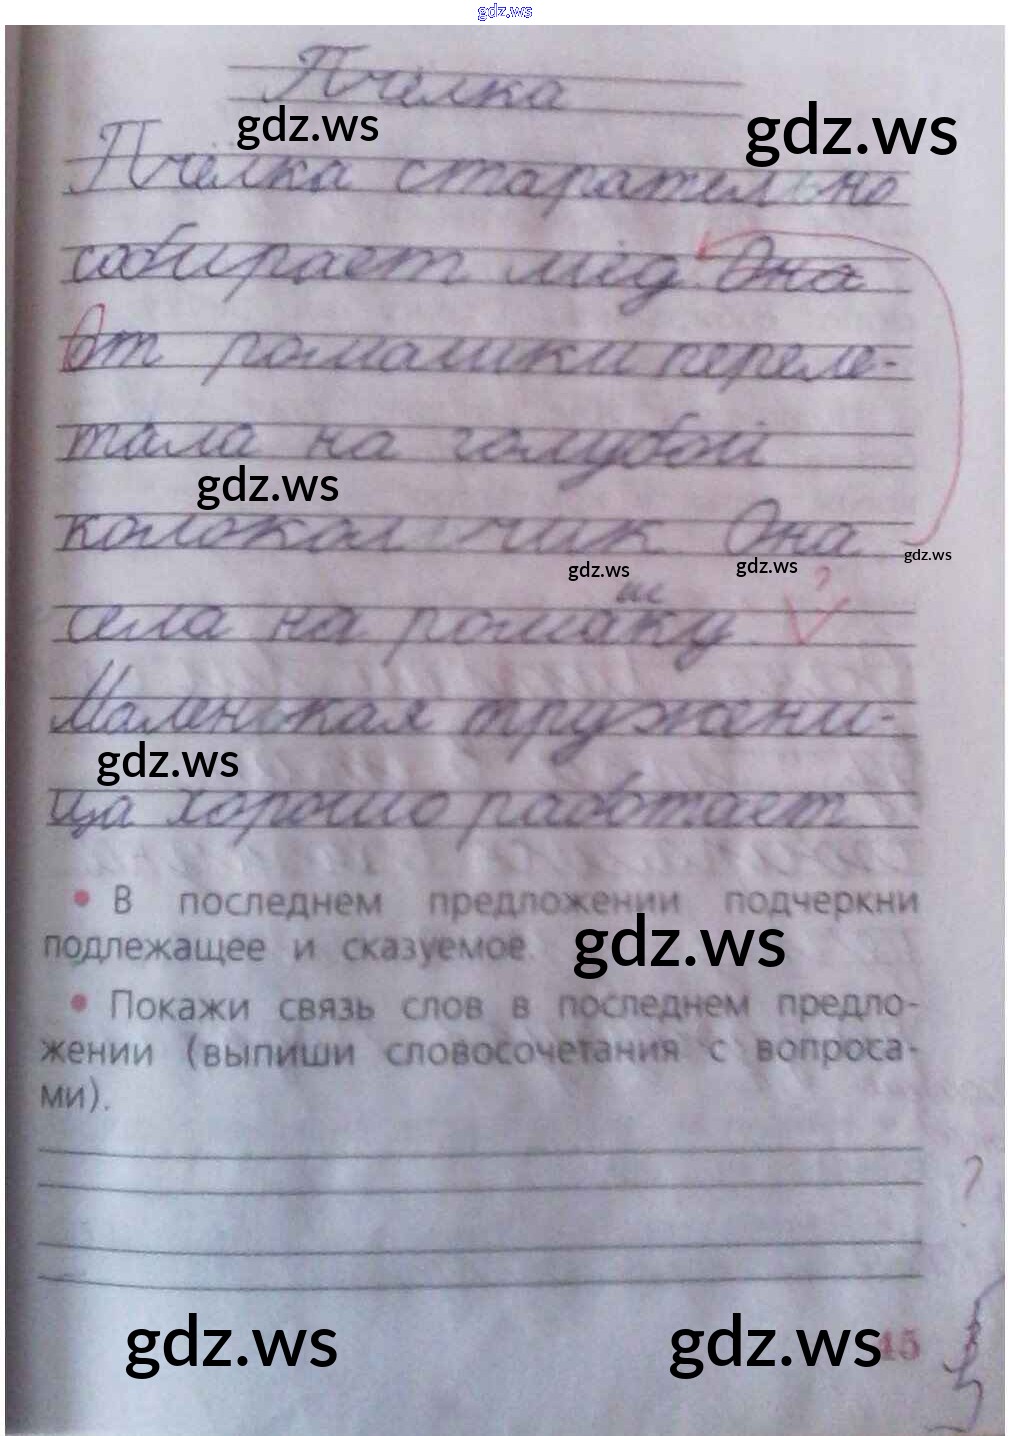 gdz.ws
Пчёлка
gdz.ws gdz.ws
Пчёлка старательно
собирает мёд. Она
От ромашки переле-
тала на голубой
gdz.ws
колокольчик Она
gdz.ws gdz.ws gdz.ws
ш ?
села на ромаку
Маленькая тружени-
gdz.ws
ца хорошо работает
• В последнем предложении подчеркни
подлежащее и сказуемое.
gdz.ws
• Покажи связь слов в последнем предло-
жении (выпиши словосочетания с вопроса-
ми).
?
gdz.ws gdz.ws 45